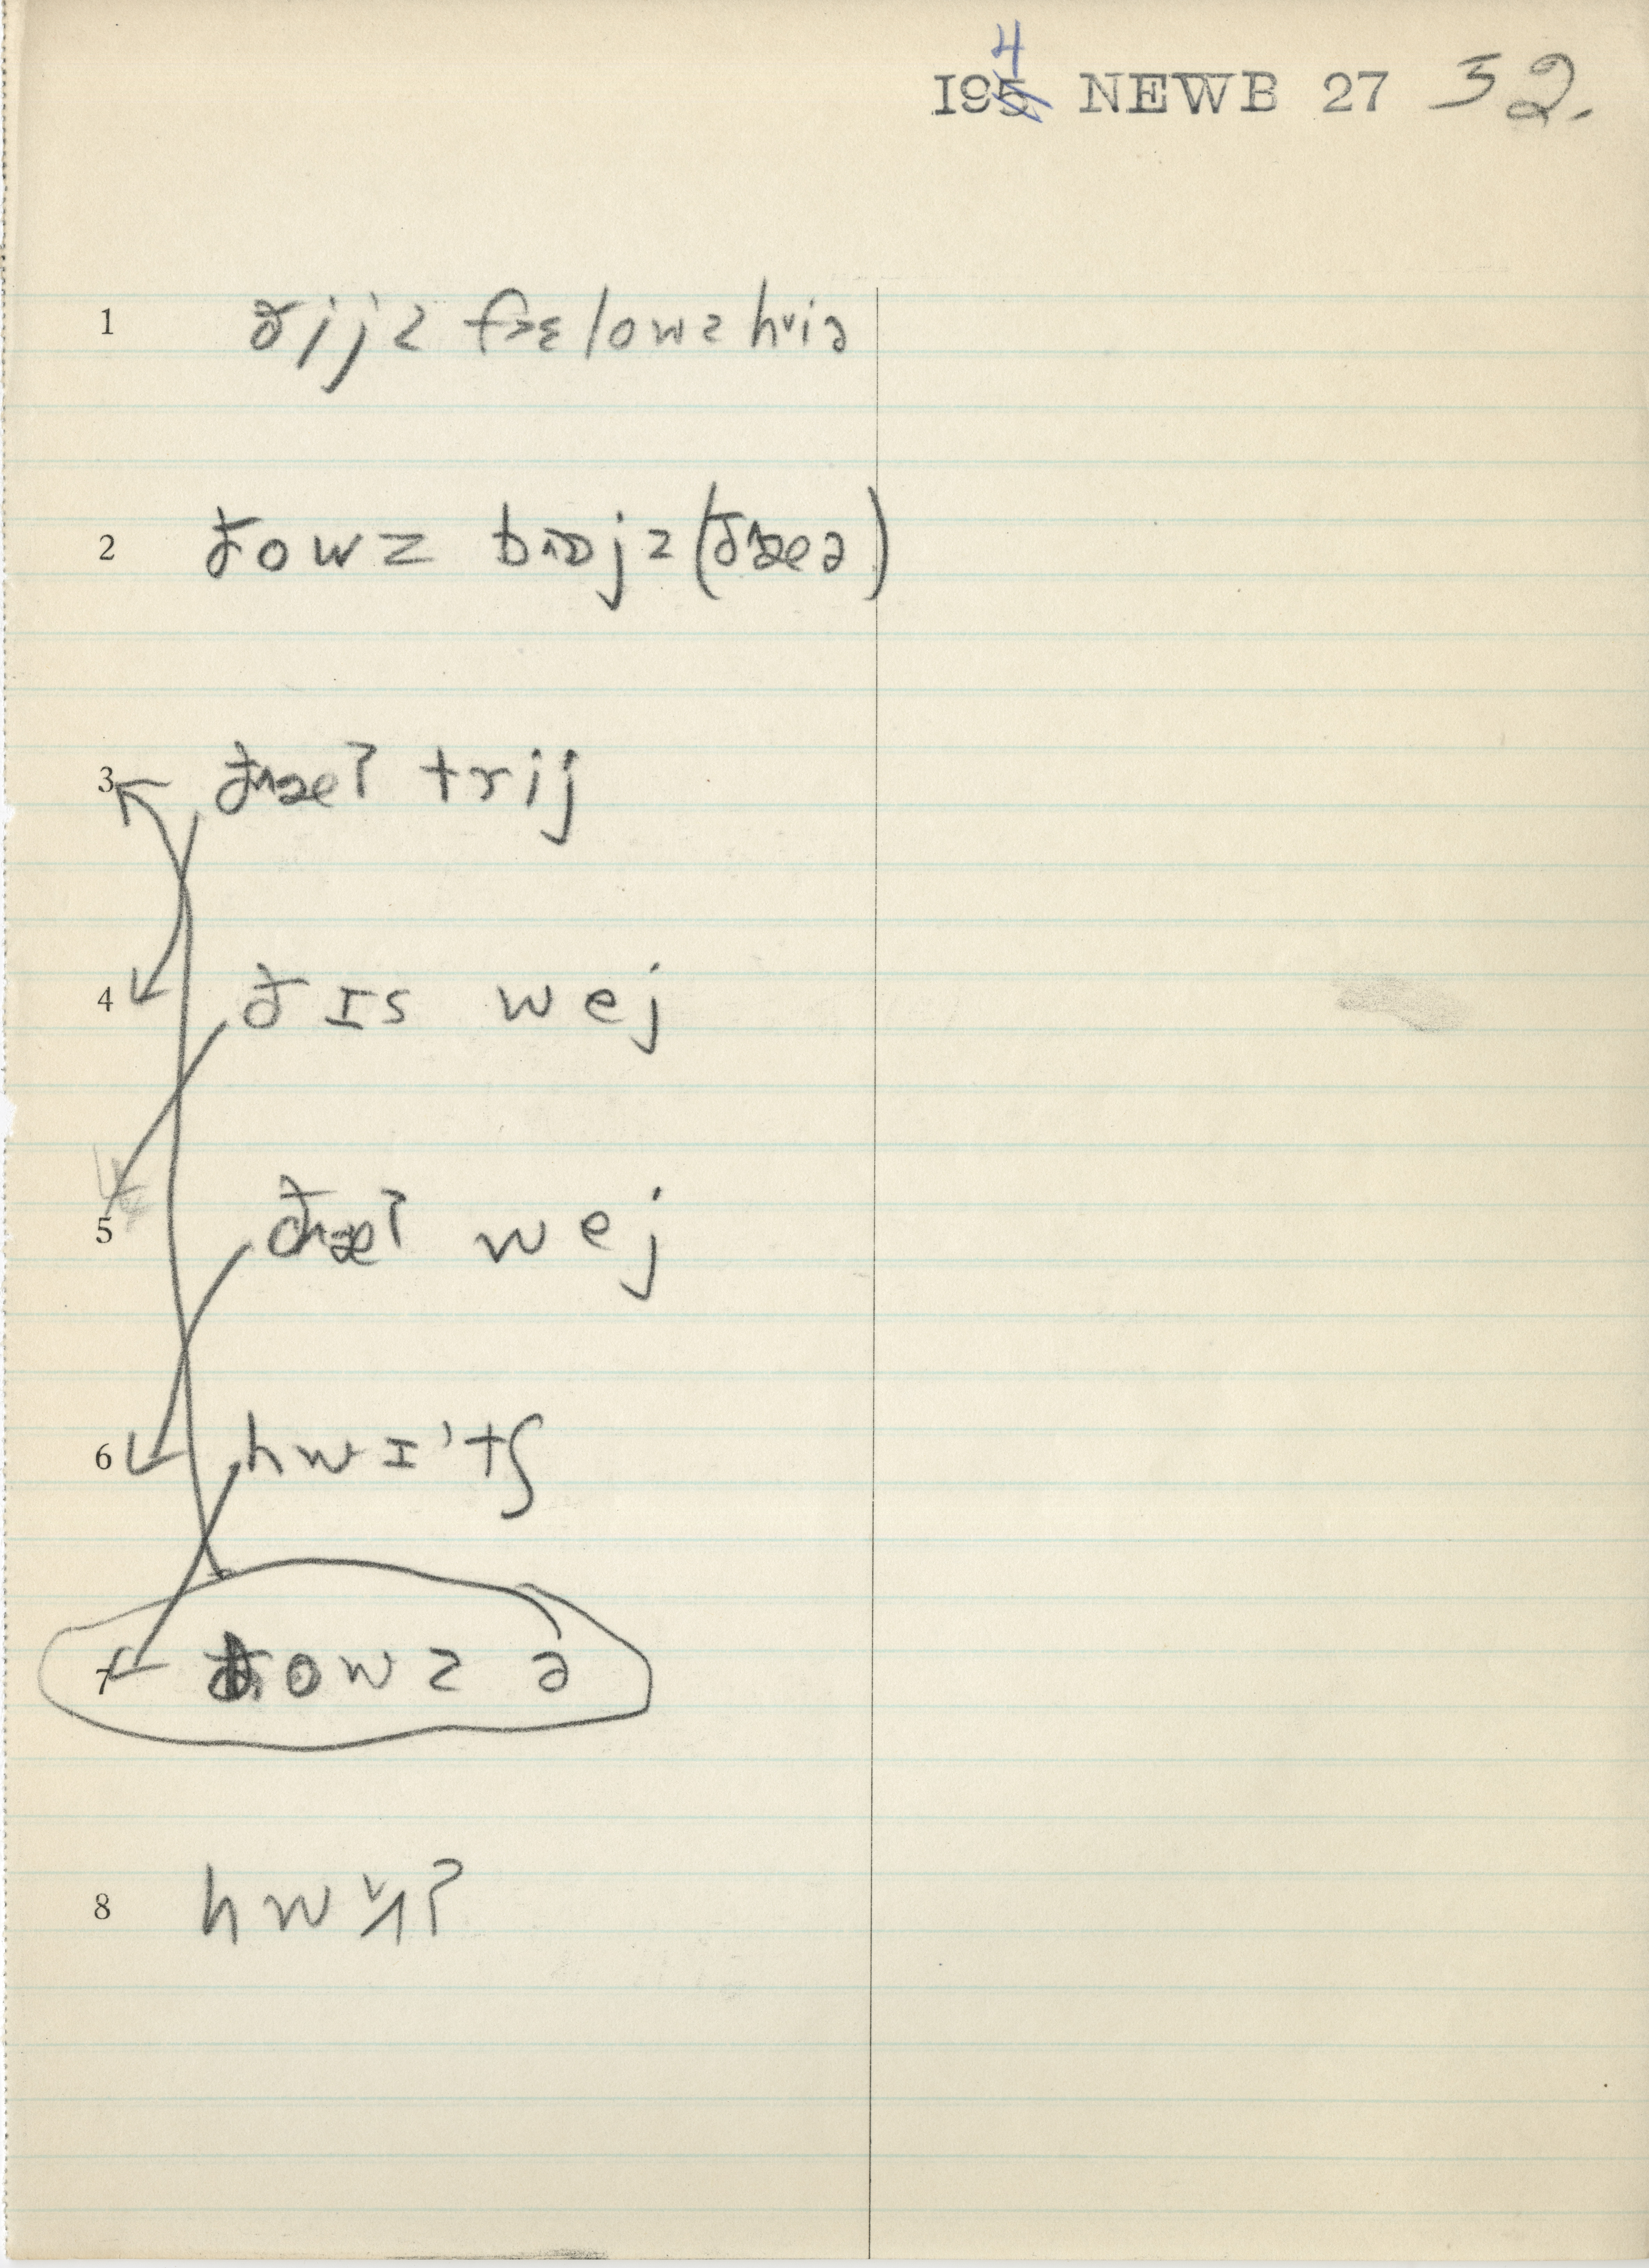 194 NEWB 27 32.
1 ðijz fɛlowz hiə
2 ðowz bɔjz (ðæə)
3 ðæʔ trij
4 ðɪs wej
5 ðæʔ wej
6 hwɪ'tʃ
7 ðowz ə
8 hw ʔ